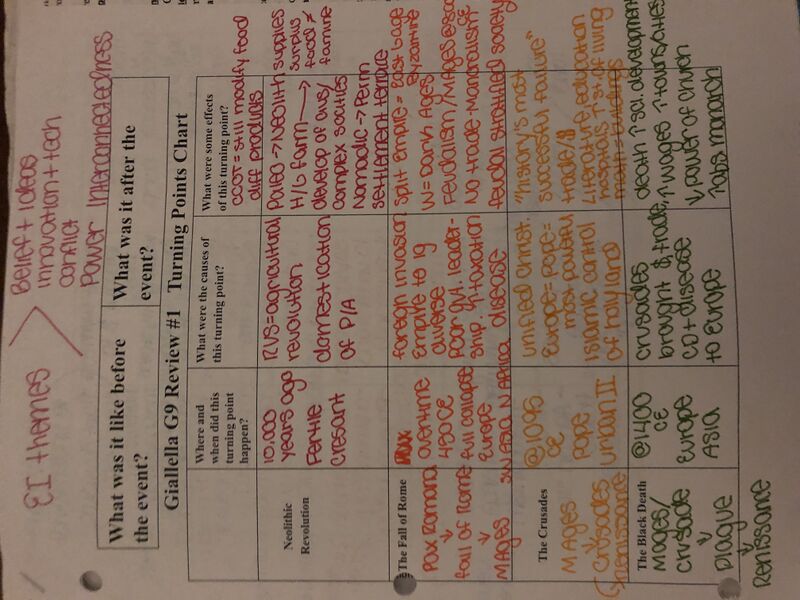 EI themes
Belief + ideas
innovation + tech
conflict
Power Interconnectedness
What was it like before
the event?
What was it after the
event?
Giallella G9 Review #1 Turning Points Chart
Where and
when did this
turning point
happen?
What were the causes of
this turning point?
What were some effects
of this turning point?
COOT = still modify food
diff products
Neolithic
Revolution
10,000
years ago
Fertile
Cresant
RVS = agricultural
revolution
domestication
of P/A
Paleo → Neolith
H/G farm →
develop of civs/
complex socities
Nomadic → Perm
settlement
supplies
surplus
food ≠
famine
The Fall of Rome
Pax Romana
↓
fall of Rome
↓
MAges
overtime
450 CE
full collapse
Europe
SW Asia N Africa
foreign invasion
Empire to lg
diverse
Poor gvt. leader-
ship. ↑ taxation
disease
Split Empire = East Lage
Byzantine
W = Dark Ages
Feudalism/MAges
No trade - Manorialism
feudal stratified society
The Crusades
MAges
Crusades
Renissance
@1095
CE
Pope
Urban II
unified christ.
Europe = pope =
most powerful
Islamic control
of Holyland
"history's most
successful failure"
trade/$
Literature, education
hospitals ↑ st. of living
The Black Death
MAges/
Crusade
↓
plague
↓
Renissance
@1400
CE
Europe
ASIA
crusades
brought $, trade,
CD + disease
to Europe
death ↑ sci. development
↑ wages ↑ towns/cities
↓ power of church
↑ abs monarch